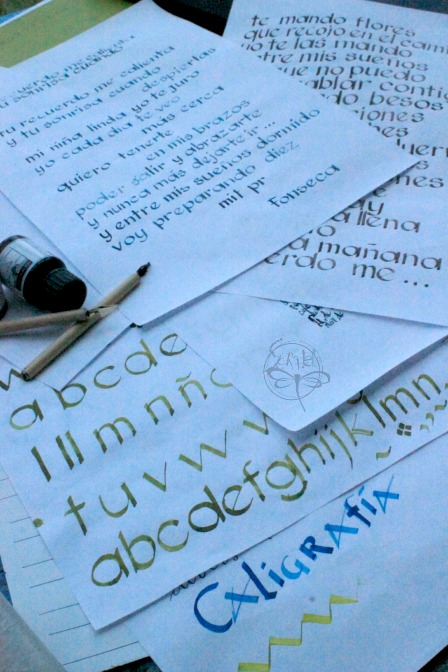 tu recuerdo me calienta
y tu sonrisa cuando
despiertas
mi niña linda yo te juro
yo cada día te veo
más cerca
quiero tenerte
en mis brazos
poder salir y abrazarte
y nunca más dejarte ir...
y entre mis sueños dormido
voy preparando diez
mil pr
Fonseca
te mando flores
que recojo en el cam
yo te las mando
tre mis sueños
ue no puedo
ablar contig
ndo besos
iones
nes
nes
llena
a mañana
erdo me ...
abcde
l ll m n ñ
t u v w
abcdefghijklmn
Caligrafía